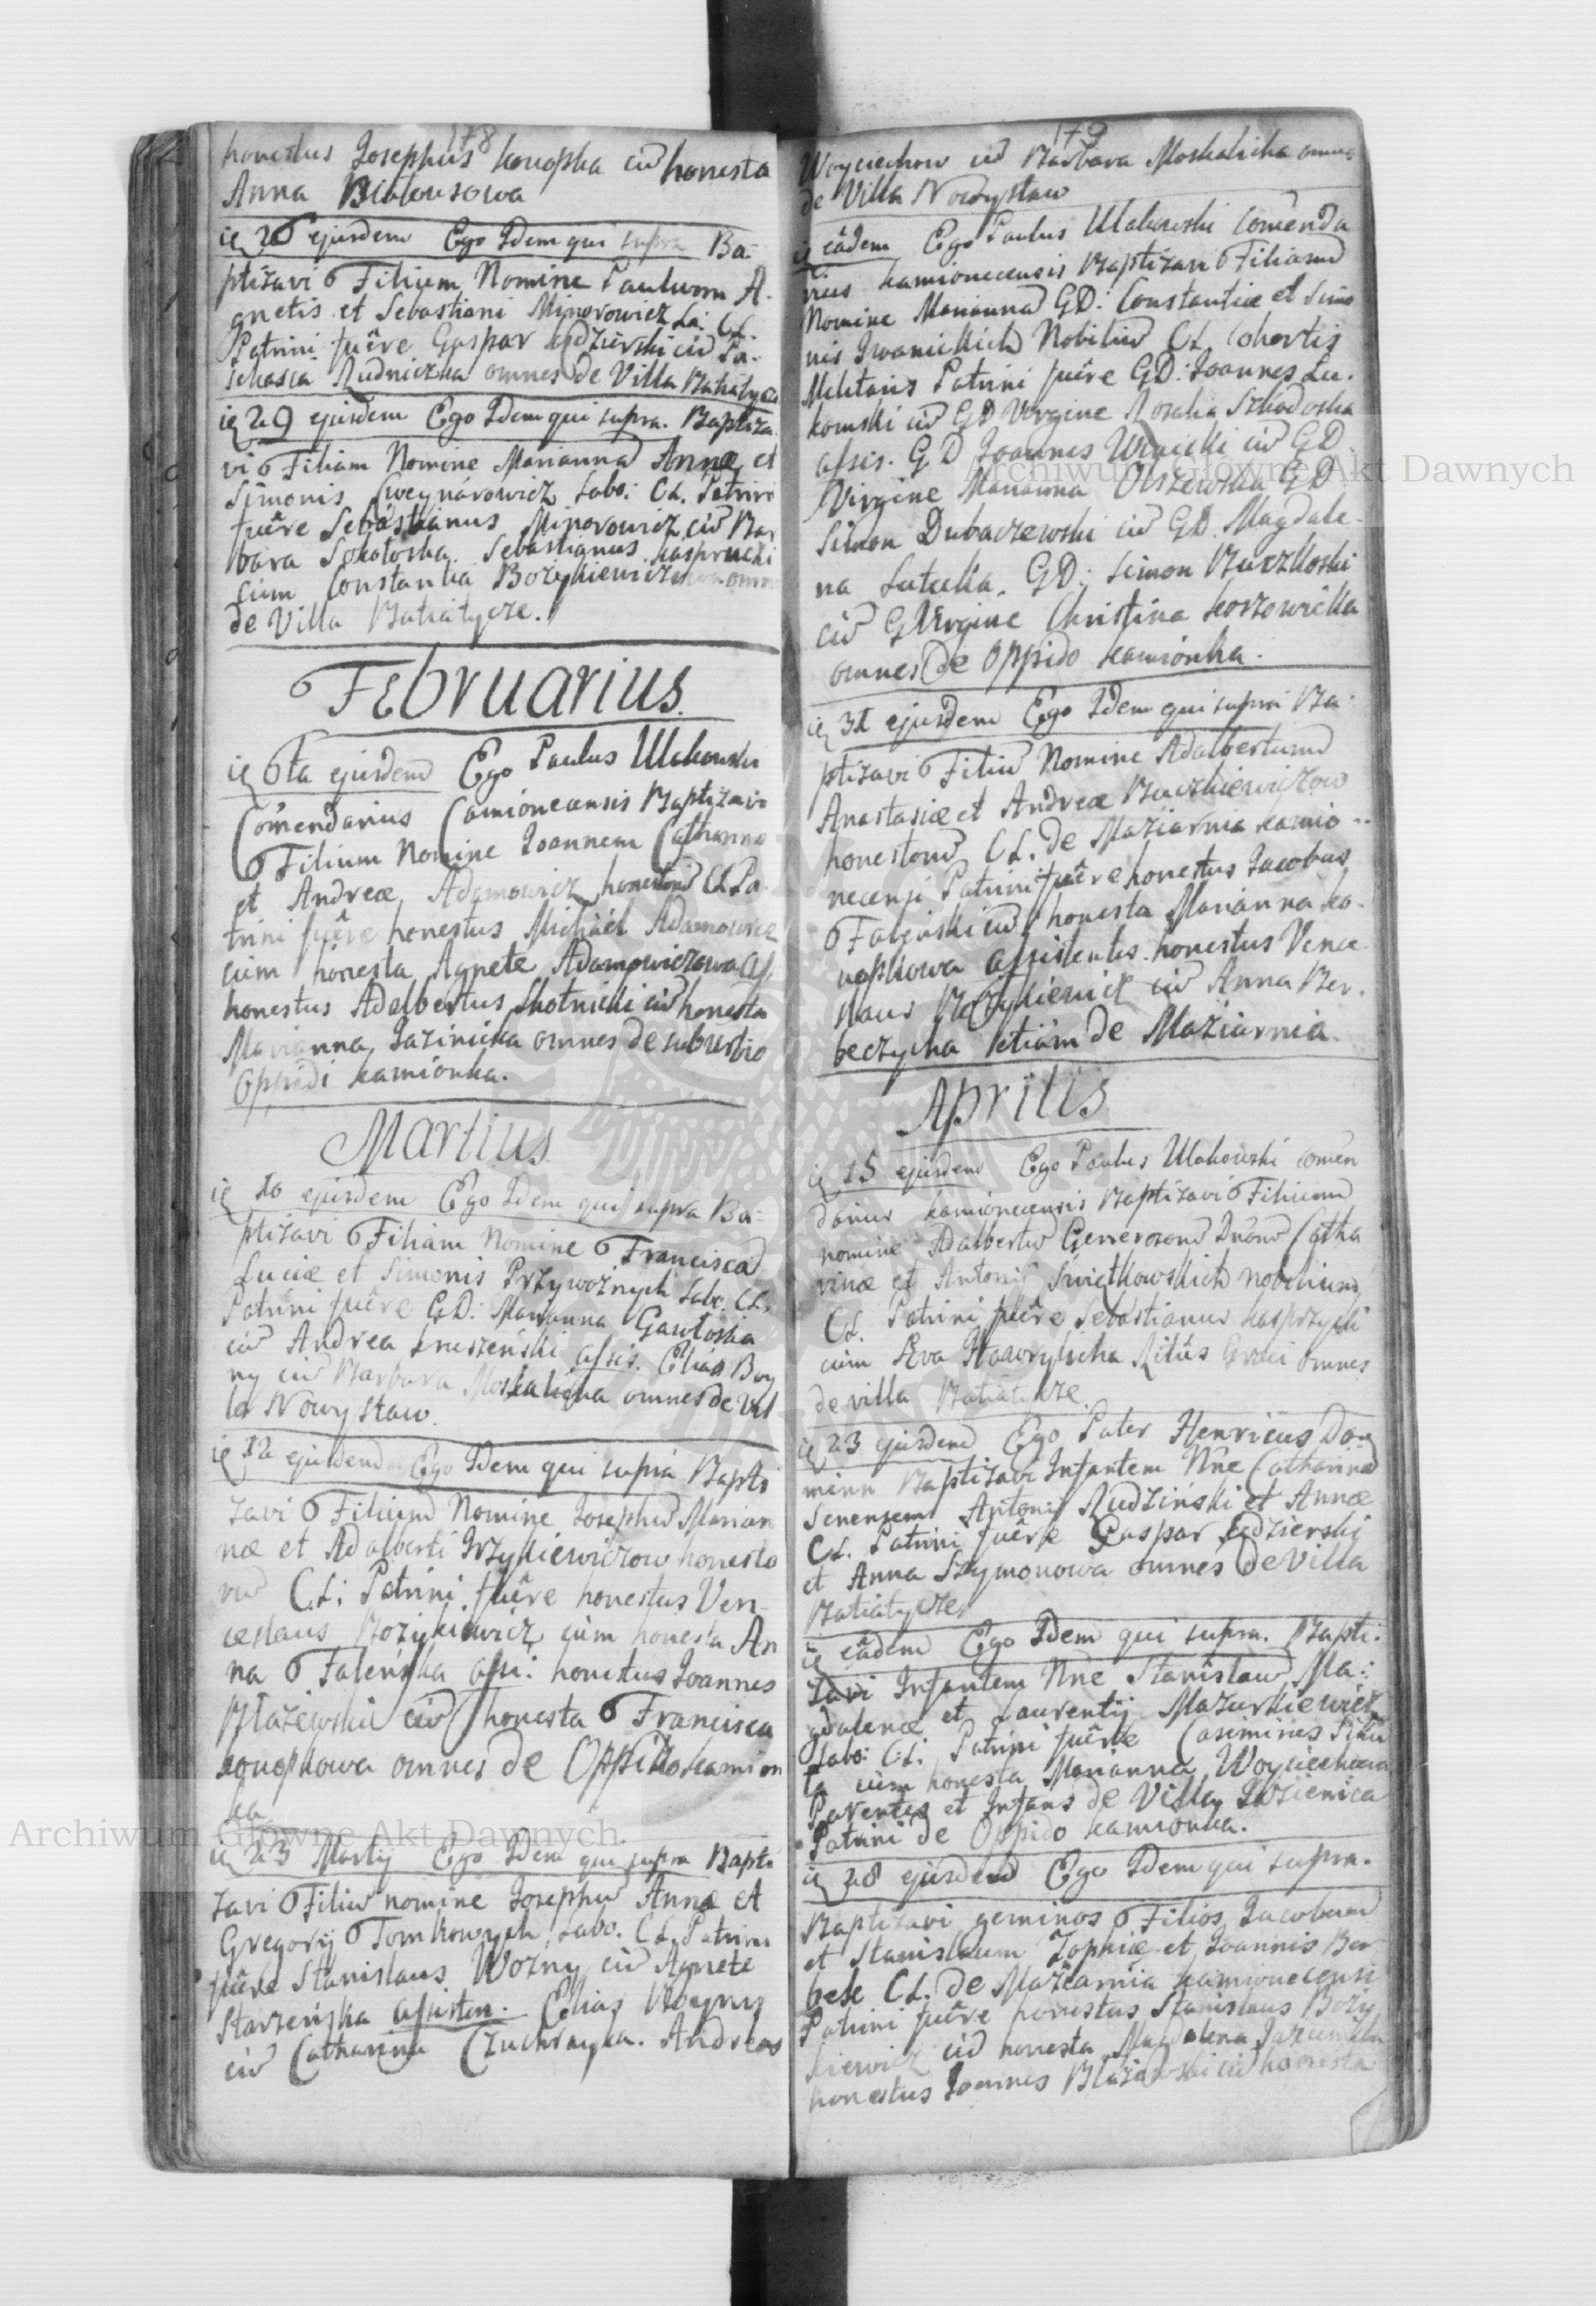 178
honestus Josephus Konopka cũ honesta
Anna Białousowa
ie 26 ejusdem Ego Idem qui supra Ba-
ptizavi Filium Nomine Paulum A-
gnetis et Sebastiani Minorowicz La: CL.
Patrini fuêre Gaspar Kędzierski cũ Pa-
schasia Rudniczka omnes de Villa Batiatycze
ie 29 ejusdem Ego Idem qui supra. Baptiza
vi Filiam Nomine Mariannã Annæ et
Simonis Labo: CL. Patrini
fuêre Sebastianus Minorowicz cũ Bar
bara Sokołoska. Sebastianus Kasprucki
cum Constantia omnes
de Villa Batiatycze.
Februarius.
ie 6ta ejusdem Ego Paulus Ulakowski
Comendarius Camionecensis Baptizavi
Filium Nomine Joannem Catharinæ
et Andreæ Adamowicz honestorũ CL Pa
trini fuêre honestus Michael Adamowicz
cum honesta Agnete Adamowiczowa Ass.
honestus Adalbertus Skotnicki cũ honesta
Marianna Jazinicka omnes de suburbio
Oppidi Kamionka.
Martius
ie 10 ejusdem Ego Idem qui supra Ba-
ptizavi Filiam Nomine Franciscã
Luciæ et Simonis Przywoźnych Labo: CL.
Patrini fuêre GD: Marianna Gawłoska
cũ Andrea assis. Elias Boy
ny cũ Barbara Moskalicha omnes de Vil
la Nowystaw.
ie 12 ejusdem Ego Idem qui supra Bapti
zavi Filium Nomine Josephũ Marian
næ et Adalberti Irzykiewiczow honesto
rũ CL: Patrini fuêre honestus Ven-
ceslaus Bozykiewicz cum honesta An
na Faleńska assi: honestus Joannes
Błażewski cũ honesta Francisca
Konopkowa omnes de Oppido Kamion
ka
ie 23 Martij Ego Idem qui supra Bapti
zavi Filiũ nomine Josephũ Annæ et
Gregorij Tomkowych Labo. CL. Patrini
fuêre Stanislaus Woźny cũ Agnete
Starzeńska assisten. Elias
cũ Catharina Andreas
179
Woyciechow cũ Barbara Moskalicha omnes
de Villa Nowystaw
ie eâdem Ego Paulus Ulakowski Comenda
rius Kamionecensis Baptizavi Filiam
Nomine Mariannã GD: Constantiæ et Simo
nis Iwanickich Nobiliũ CL. Cohortis
Militaris Patrini fuêre GD: Joannes Lu-
komski cũ GD Virgine Rosalia
assis. GD Joannes cũ GD
Virgine Marianna Olszewska GD
Simon Dubaczewski cũ GD. Magdale-
na Lutecka. GD: Simon
cũ GVirgine Christina
omnes de Oppido Kamionka.
ie 31 ejusdem Ego Idem qui supra Ba-
ptizavi Filiũ Nomine Adalbertum
Anastasiæ et Andreæ
honestorũ CL. de Maziarnia Kamio-
necensi Patrini fuêre honestus Jacobus
cũ honesta Marianna Ko-
nopkowa assistentes honestus Vence
slaus Bozykiewicz cũ Anna Ber-
beczycha etiam de Maziarnia.
Aprilis
ie 15 ejusdem Ego Paulus Ulakowski comen
darius Kamionecensis Baptizavi Filium
nomine Adalbertũ Generosorũ Dnorũ Catha
rinæ et Antonij Świętkowskich nobilium
CL. Patrini fuêre Sebastianus Kasprzycki
cum Eva Hawrylicha Ritûs Græci omnes
de villa Batiatycze.
ie 23 ejusdem Ego Pater Henricus Do-
minn Baptizavi Infantem Nne Catharinã
Senensem Antonij Rudziński et Annæ
CL. Patrini fuêre Gaspar Kędzierski
et Anna Szymonowa omnes de Villa
Batiatycze
ie eâdem Ego Idem qui supra. Bapti-
zavi Infantem Nne Stanislaũ Ma-
gdalenæ et Laurentij Mazurkiewicz
Labo: CL: Patrini fuêre Casimirus
cum honesta Marianna Woyciechowa
Parentes et Infans de Villa
Patrini de Oppido Kamionka.
ie 28 ejusdem Ego Idem qui supra.
Baptizavi geminos Filios Jacobum
et Stanislaum Zophiæ et Joannis Ber
beki CL. de Maziarnia Kamionecensi
Patrini fuêre honestus Stanislaus Bozy
kiewicz cũ honesta Magdalena
honestus Joannes Błażewski cũ honesta
Archiwum Główne Akt Dawnych
Archiwum Główne Akt Dawnych